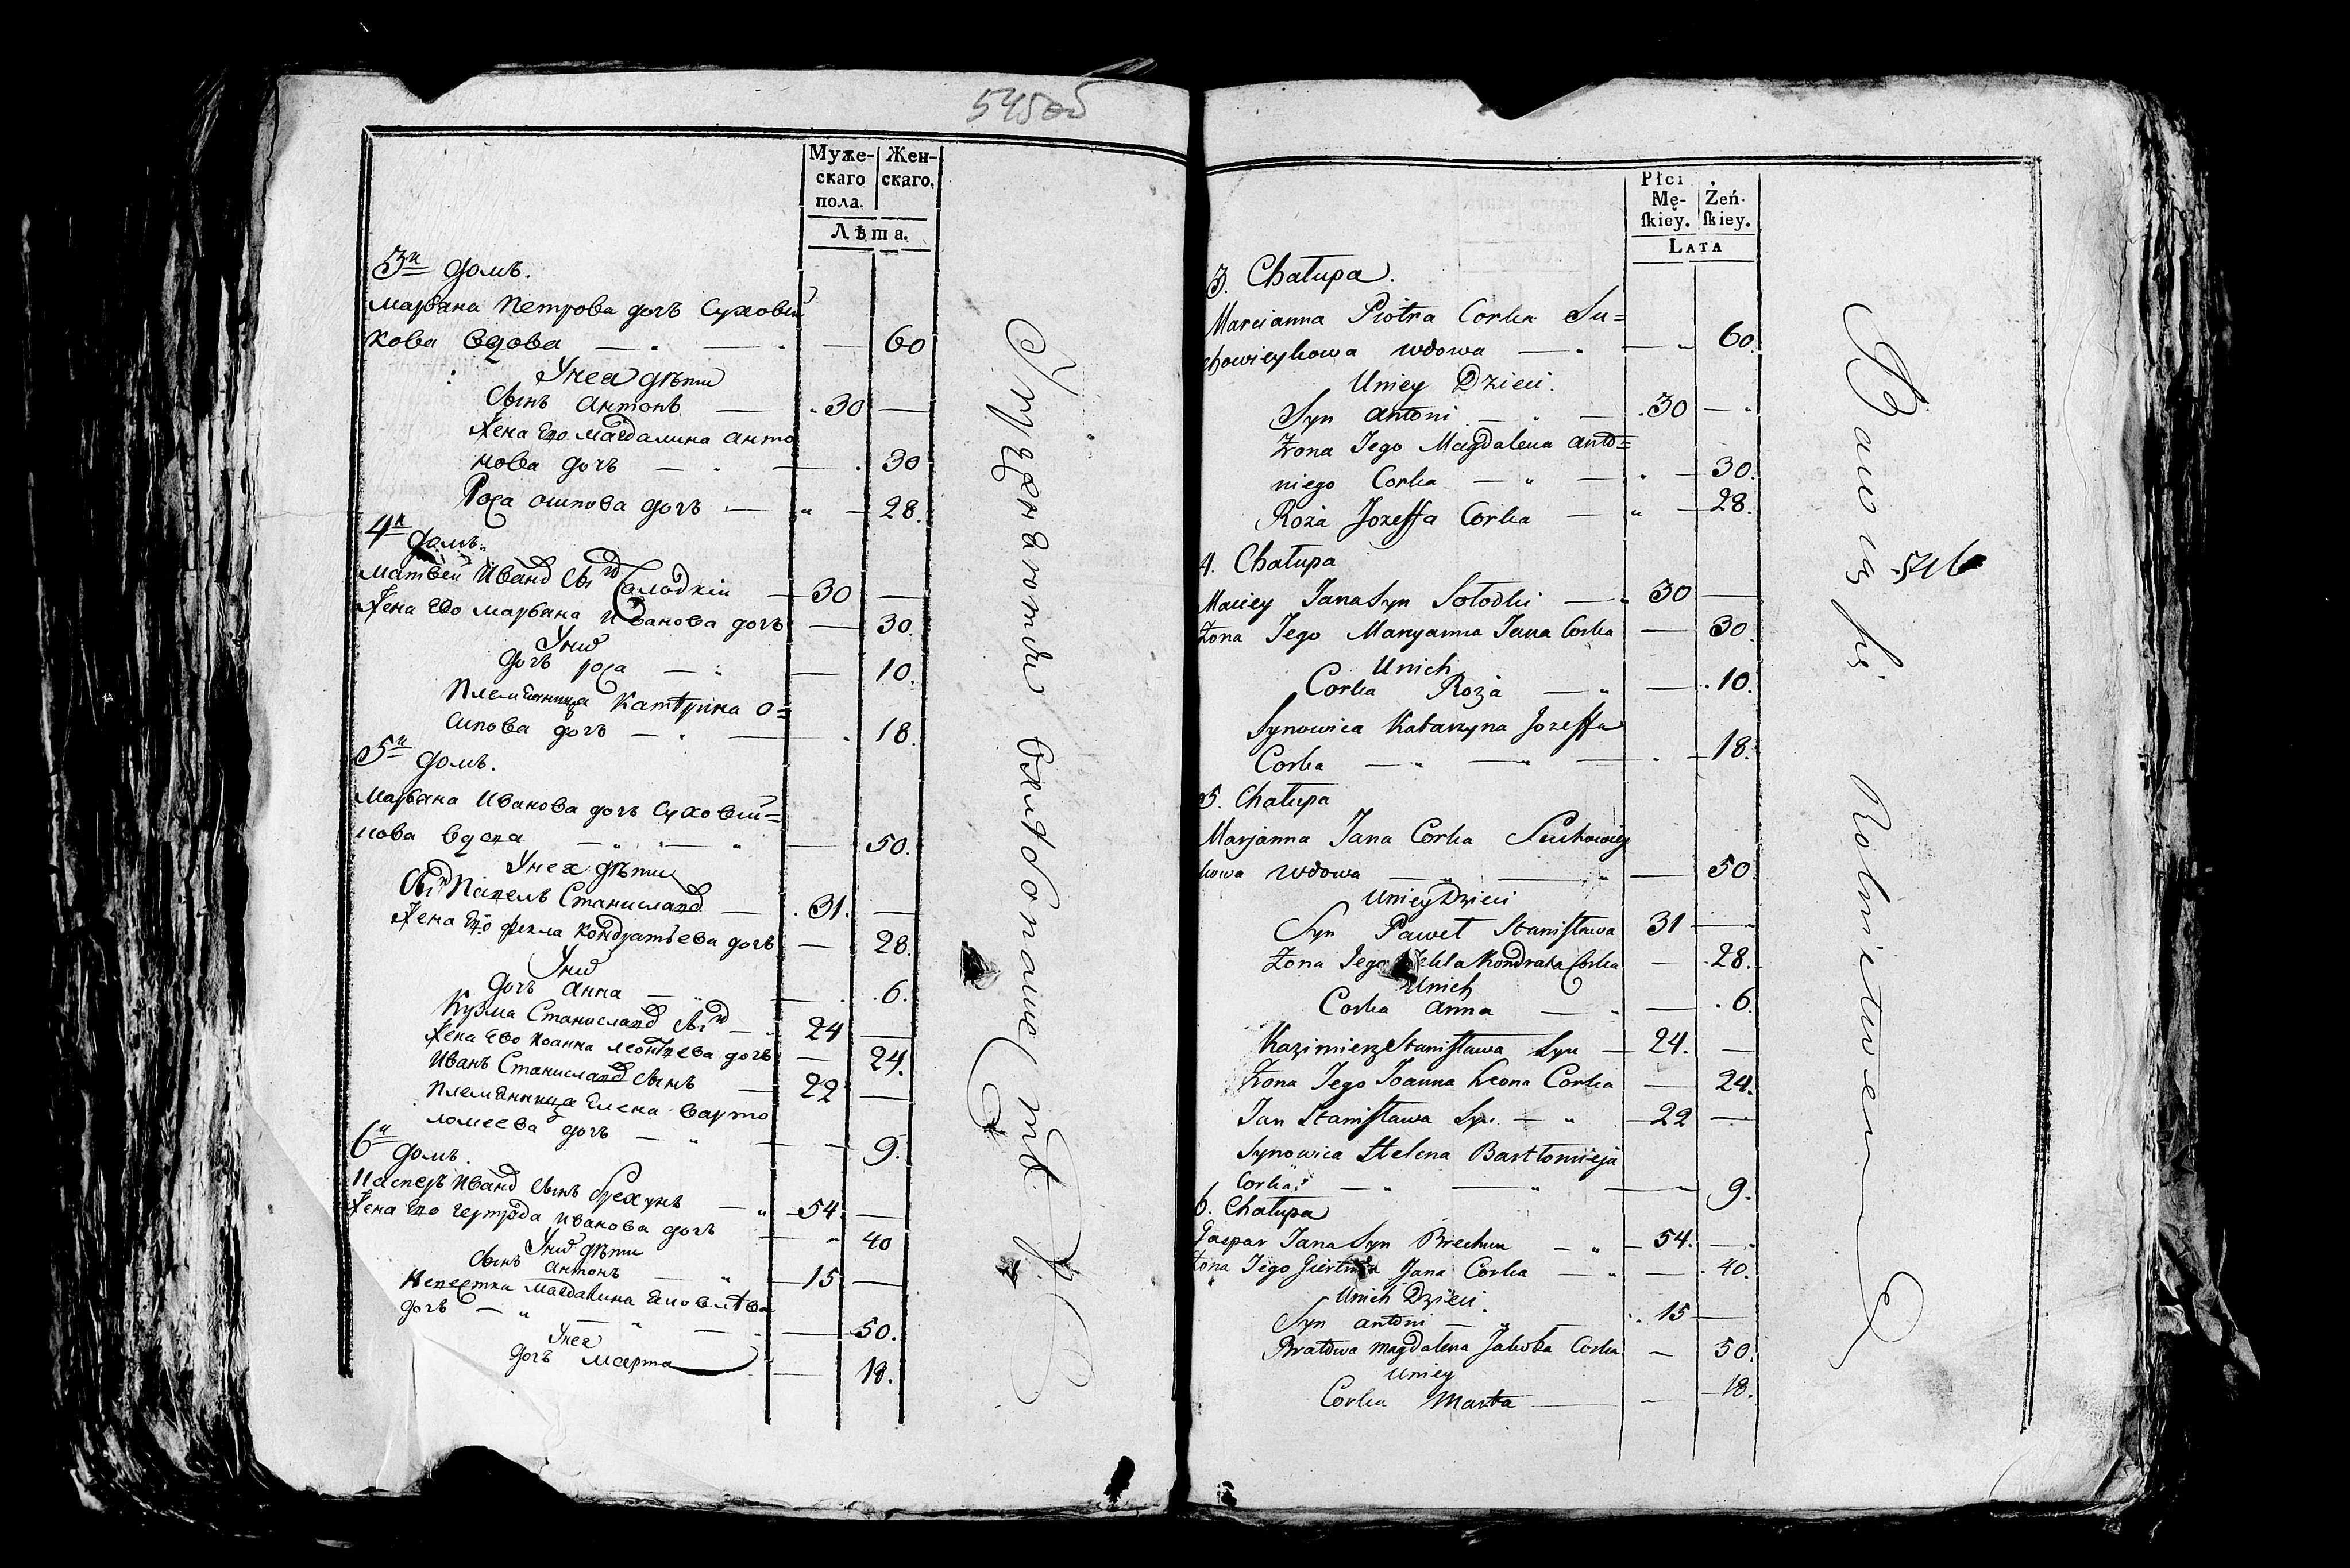 545об
Муже-
скаго
пола.
Жен-
скаго.
Лѣта.
3й домъ.
Марьяна Петрова дочъ Сухови
кова вдова — — — 60
Унея дѣти
Сынъ Антонъ — 30 —
Жена Его Магдалина Анто
нова дочъ — — 30
Роза Осипова дочъ — — 28.
4й домъ.
Матвей Иванов Сын Солодкiй — 30 —
Жена Его Марьяна Иванова дочъ — 30.
Уних
дочъ Роза — — 10.
Племянница Катерина О=
сипова дочъ — — 18.
5й домъ.
Марьяна Иванова дочъ Суховей=
кова вдова — — 50.
Унея дѣти
Сын Павелъ Станиславов — 31. —
Жена Его Фекла Кондратьева дочъ — 28.
Уних
дочъ Анна — — 6.
Кузма Станиславов Сын — 24 —
Жена Его Иоанна Леонтьева дочъ — 24.
Иванъ Станиславов Сынъ — 22 —
Племянница Елена Варто
ломеева дочъ — — 9.
6й домъ.
Касперъ Иванов Сынъ Брехунъ — 54 —
Жена Его Гертруда Иванова дочъ — 40
Уних дѣти
Сынъ Антонъ — 15 —
Невестка Магдалина Яковлева
дочъ — — 50.
Унея
дочъ Марта — 18.
Упражняются в хлебопашестве
Płci
Mę-
ſkiey.
Żeń-
ſkiey.
LATA
3. Chałupa.
Marcianna Piotra Corka Su=
chowieykowa wdowa — — 60.
Uniey Dzieci.
Syn Antoni — 30 —
Żona Jego Magdalena Anto=
niego Corka — — 30.
Roża Jozeffa Corka — — 28.
4. Chałupa
Maciey Jana Syn Sołodki — 30 —
Żona Jego Maryanna Jana Corka — 30.
Unich
Corka Roża — — 10.
Synowica Katarzyna Jozeffa
Corka — — 18.
5. Chałupa
Marjanna Jana Corka Suchowiey
kowa wdowa — — 50.
Uniey Dzieci
Syn Paweł Staniſława 31 —
Żona Jego Tekla Kondrata Corka — 28.
Unich
Corka Anna — — 6.
Kazimierz Staniſława Syn — 24. —
Żona Jego Joanna Leona Corka — 24.
Jan Staniſława Syn — 22 —
Synowica Helena Bartłomieja
Corka — — 9.
6. Chałupa
Gaspar Jana Syn Brechun — 54. —
Żona Jego Giertruda Jana Corka — 40.
Unich Dzieci.
Syn Antoni — 15 —
Bratowa Magdalena Jakoba Corka — 50.
Uniey
Corka Marta — 18.
546
Bawią się Rolnictwem